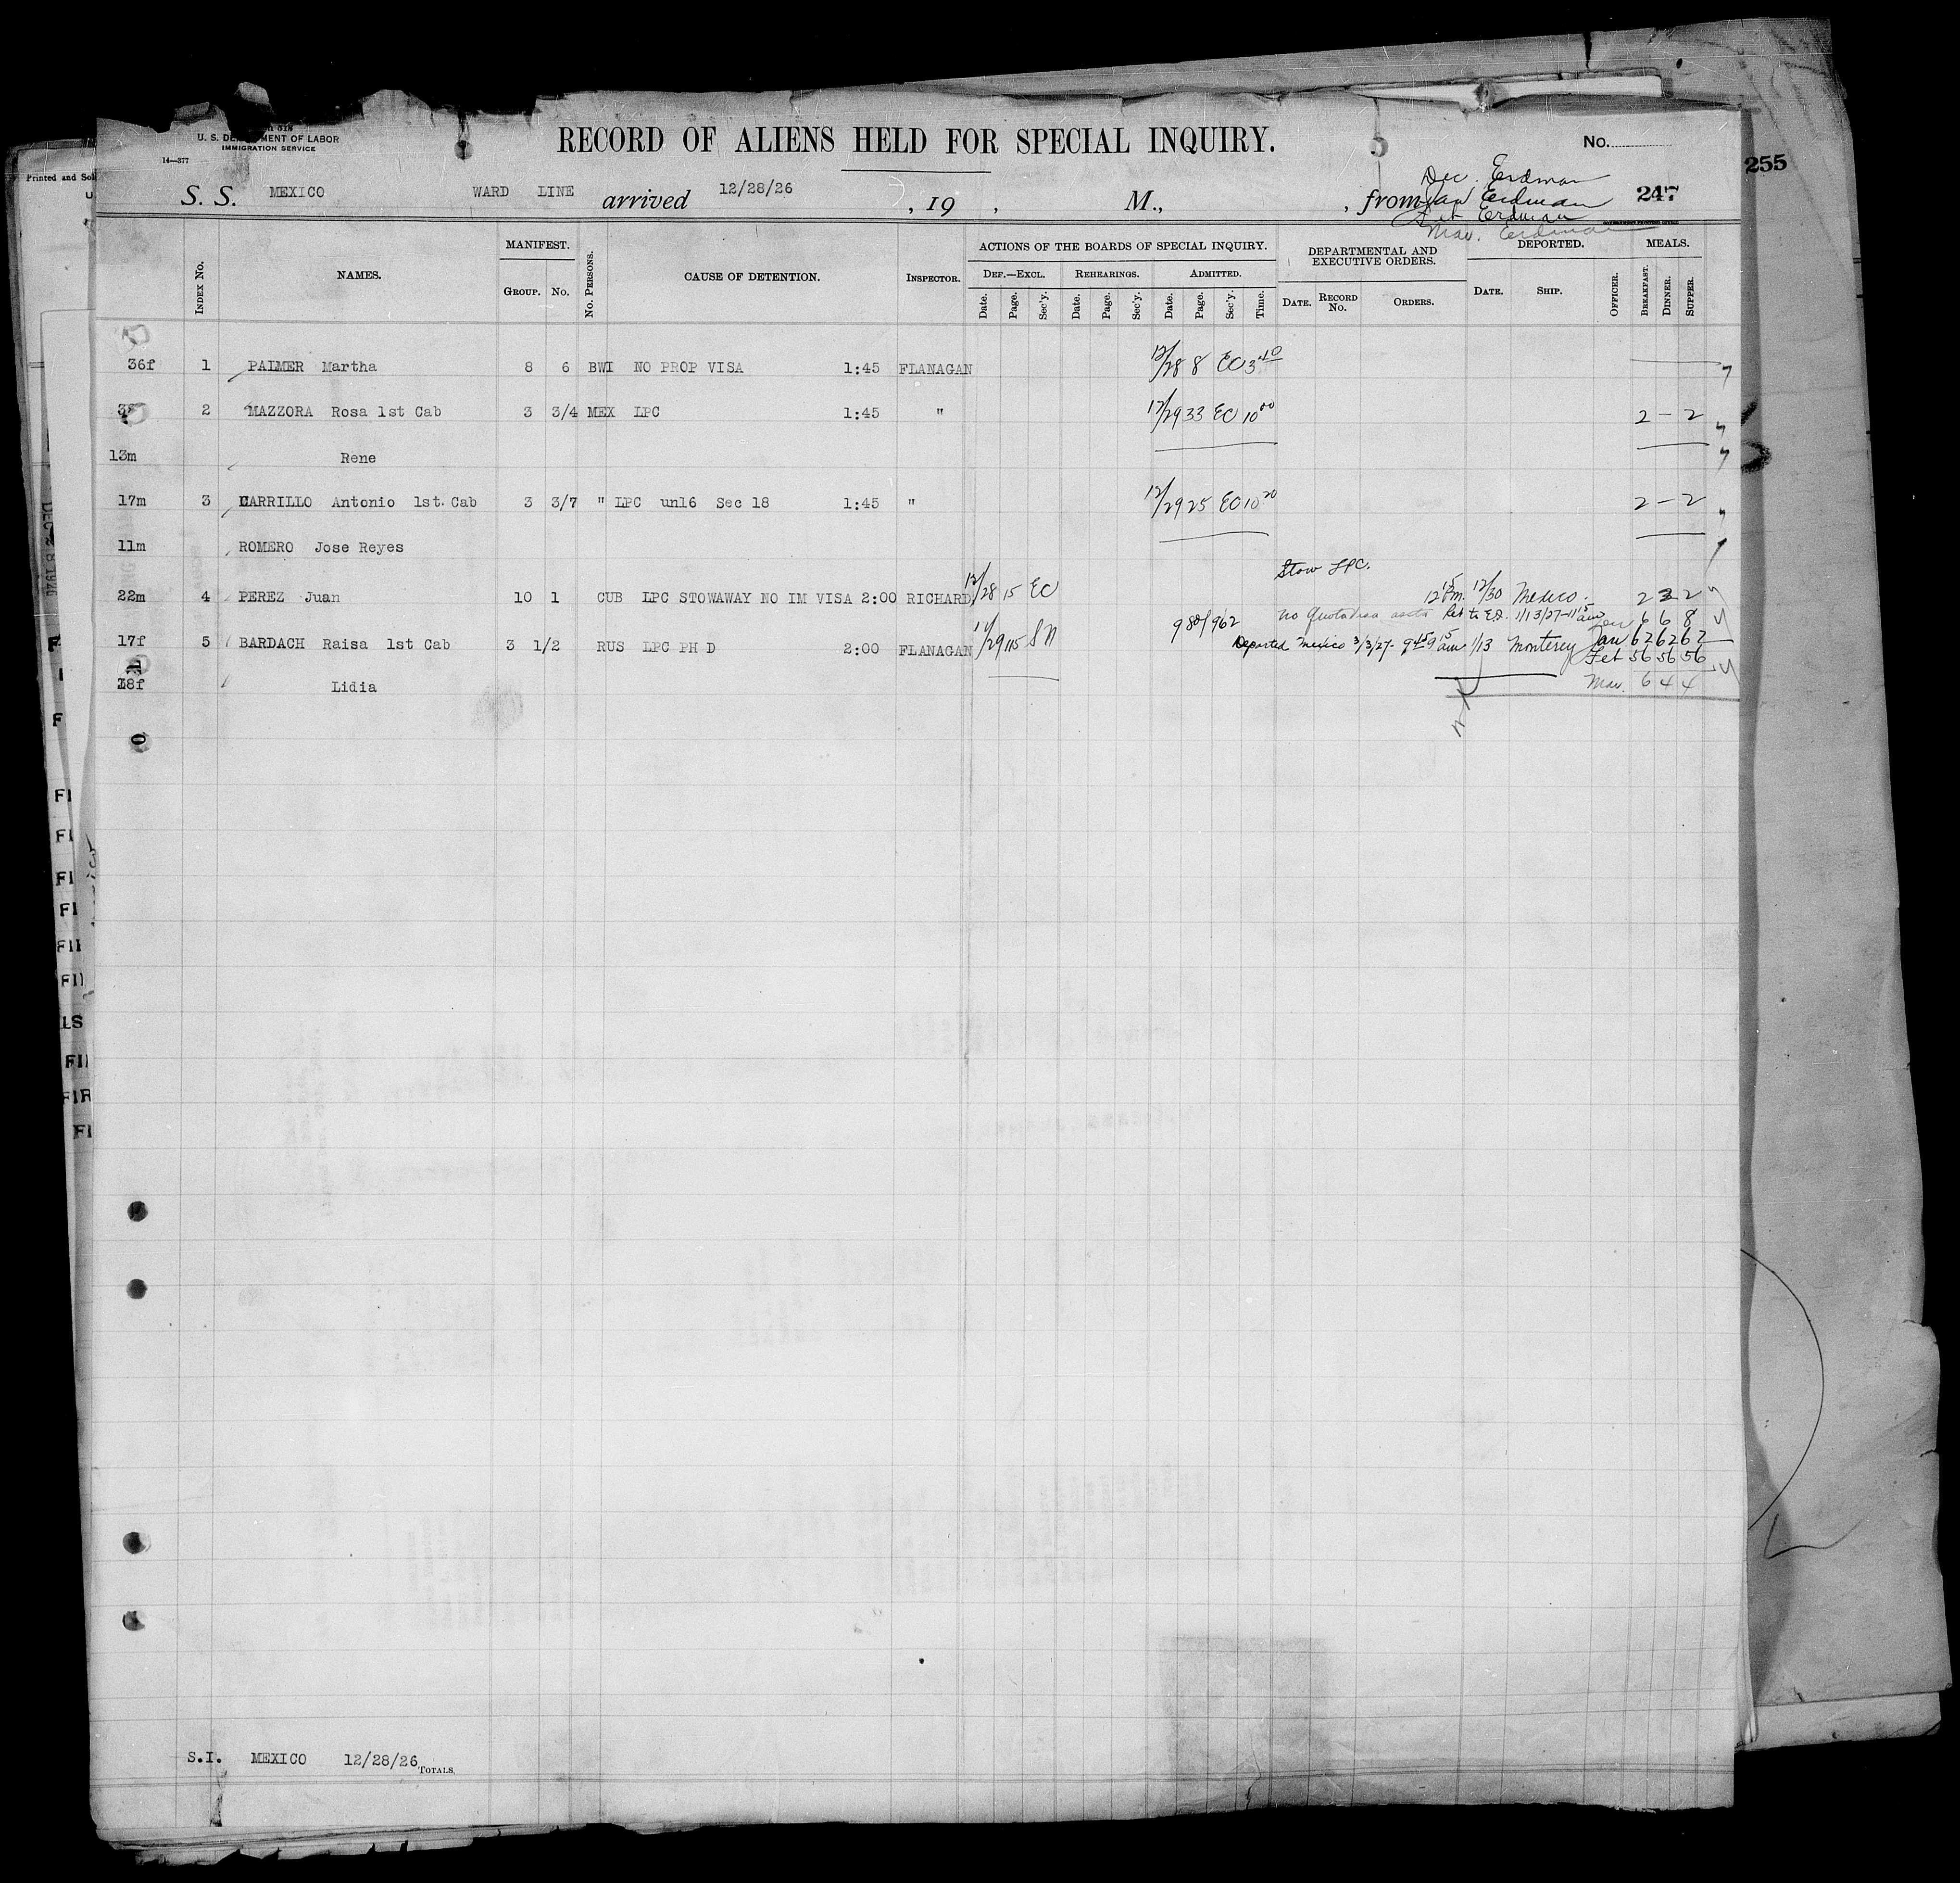 U. S. DEPARTMENT OF LABOR
IMMIGRATION SERVICE
14—377
RECORD OF ALIENS HELD FOR SPECIAL INQUIRY.
No.
255
Printed and Sol
S. S. MEXICO WARD LINE arrived 12/28/26, 19 , M., , from
Dec. Erdman
Jan Erdman
Erdman
Mar. Erdman
247
INDEX No. NAMES. MANIFEST. GROUP. No. No. PERSONS. CAUSE OF DETENTION. INSPECTOR. ACTIONS OF THE BOARDS OF SPECIAL INQUIRY. DEPARTMENTAL AND EXECUTIVE ORDERS. DEPORTED. MEALS.
DEF.—EXCL. REHEARINGS. ADMITTED.
Date. Page. Sec'y. Date. Page. Sec'y. Date. Page. Sec'y. Time. DATE. RECORD No. ORDERS. DATE. SHIP. OFFICER. BREAKFAST. DINNER. SUPPER.
36f 1 PALMER Martha 8 6 BWI NO PROP VISA 1:45 FLANAGAN 12/28 8 EC 3 40
2 MAZZORA Rosa 1st Cab 3 3/4 MEX LPC 1:45 " 12/29 33 EC 10 00 2 – 2
13m Rene
17m 3 CARRILLO Antonio 1st. Cab 3 3/7 " LPC un16 Sec 18 1:45 " 12/29 25 EC 10 20 2 – 2
11m ROMERO Jose Reyes
Stow LPC.
22m 4 PEREZ Juan 10 1 CUB LPC STOWAWAY NO IM VISA 2:00 RICHARD 12/28 15 EC 12/30 Mexico. 2 2 2
980/962 no Quota Visa 1/13/27 6 6 8
17f 5 BARDACH Raisa 1st Cab 3 1/2 RUS LPC PH D 2:00 FLANAGAN 12/29 115 SN Deported Mexico 3/3/27 1/13 Monterey Jan 62 62 62
Feb 56 56 56
18f Lidia Mar. 6 4 4
S.I. MEXICO 12/28/26 TOTALS.